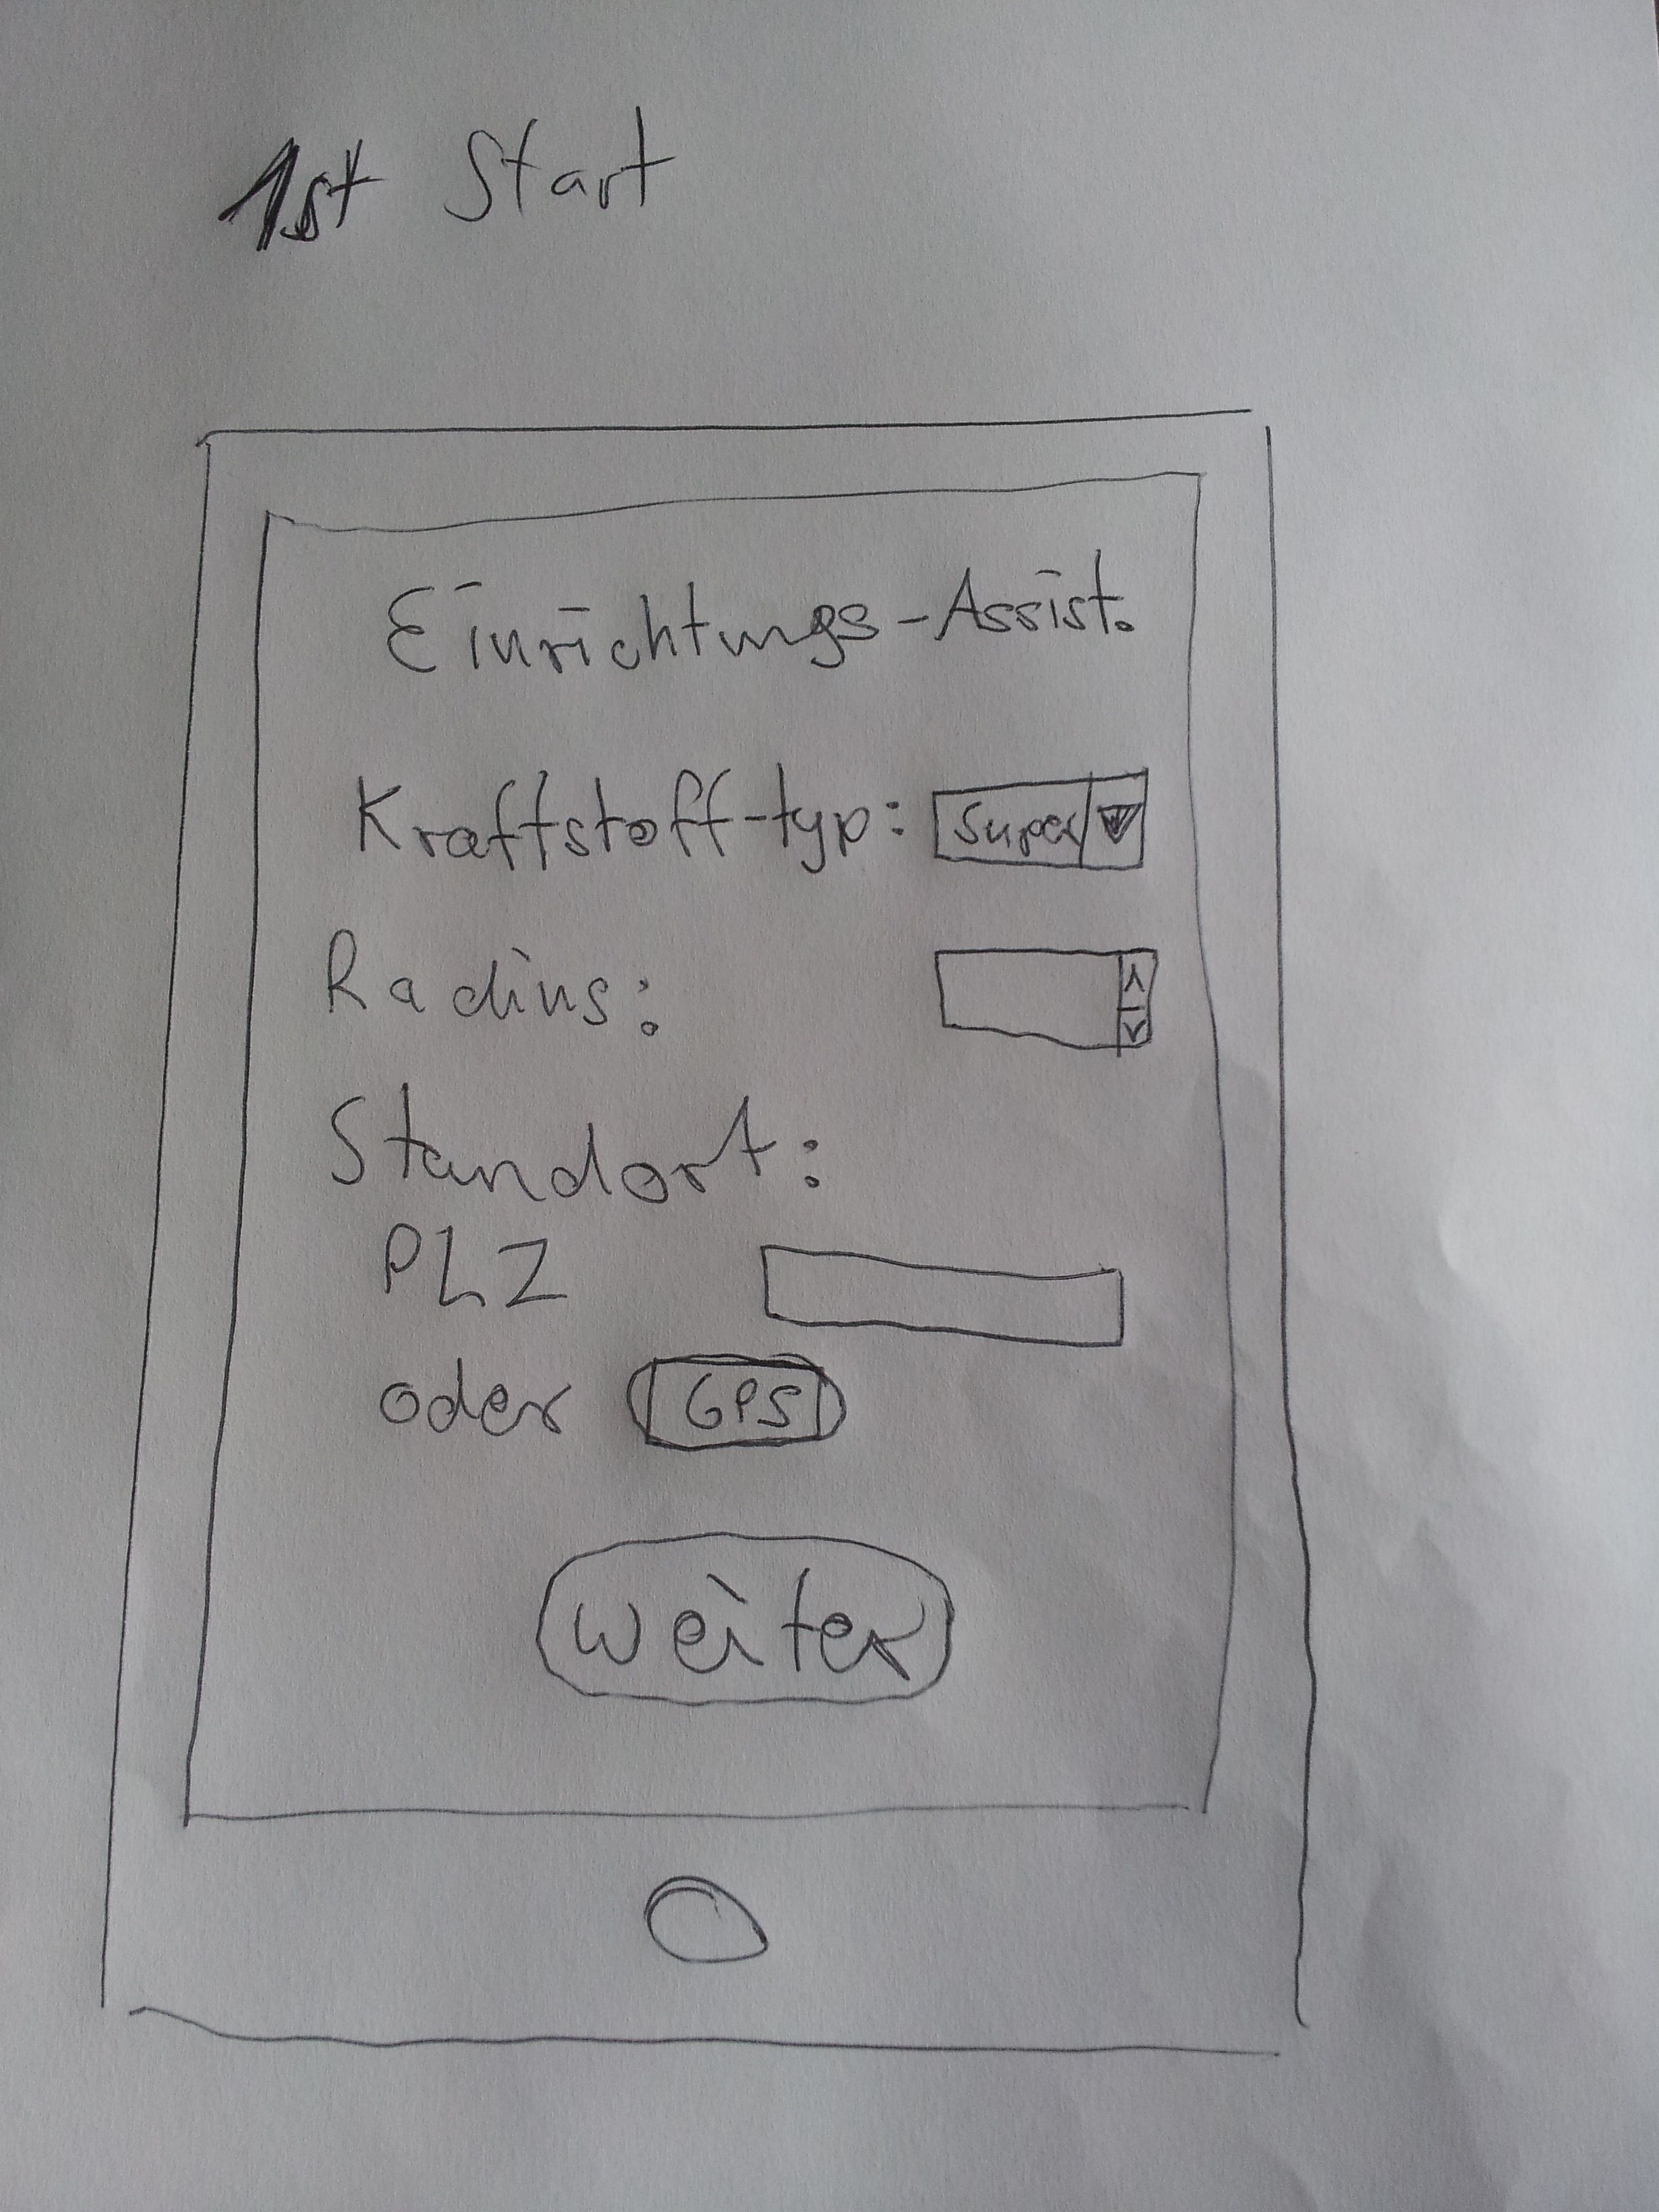 1st Start
Einrichtungs-Assist.
Kraftstoff-typ: Super
Radius:
Standort:
PLZ
oder GPS
weiter